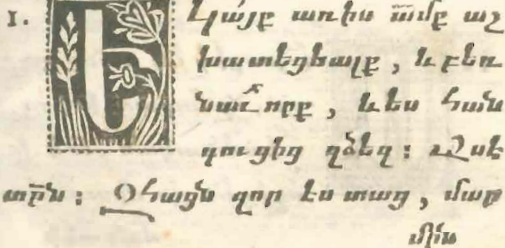 1. Եկայք առիս ամ̅ք աշ
խատեցեալք , և բեռ
նաւորք , և ես հան
գուցից զձեզ : Ասէ
տր̅ն : Զհացն զոր ես տաց , մար
մին